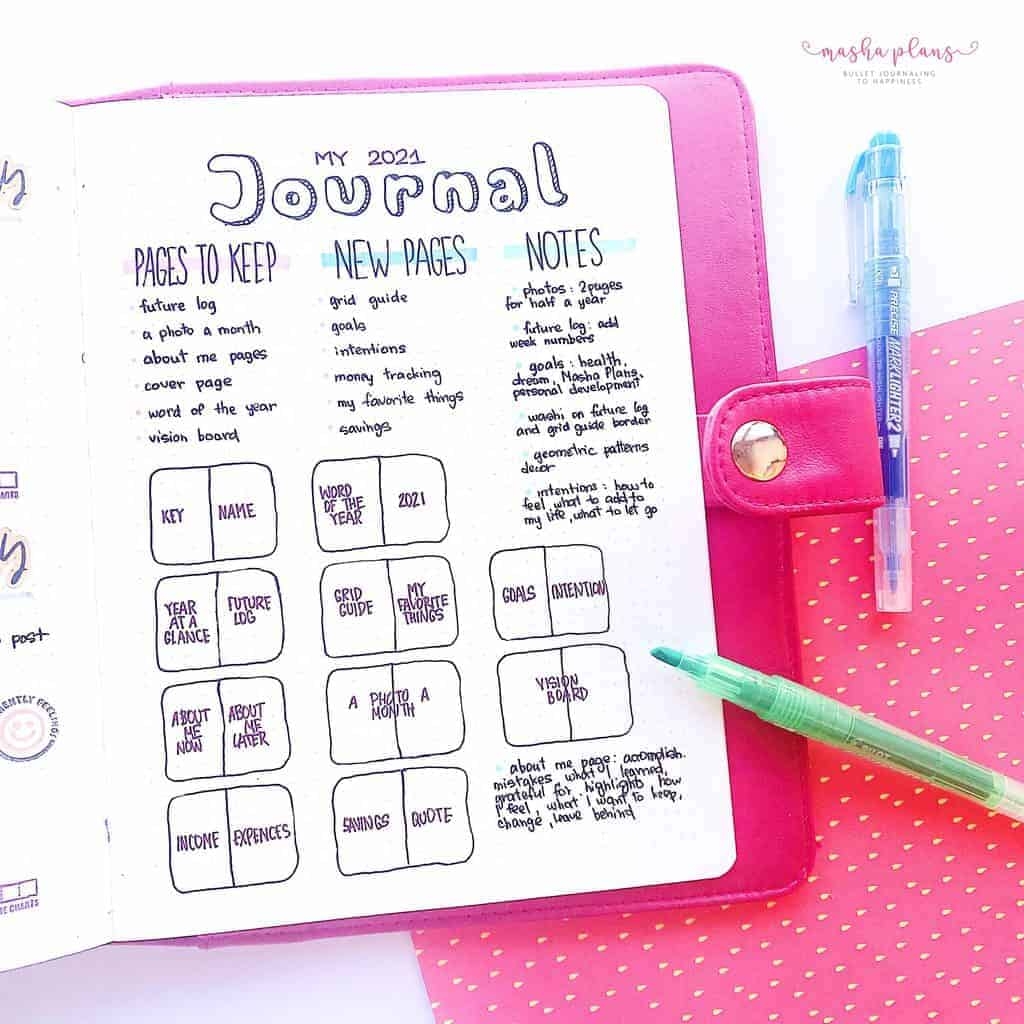 masha plans
BULLET JOURNALING
TO HAPPINESS
MY 2021
Journal
PAGES TO KEEP
future log
a photo a month
about me pages
cover page
word of the year
vision board
NEW PAGES
grid guide
goals
intentions
money tracking
my favorite things
savings
NOTES
photos: 2pages
for half a year
future log: add
week numbers
goals: health,
dream, Masha Plans,
personal development
washi on future log
and grid guide border
geometric patterns
decor
intentions: how to
feel, what to add to
my life, what to let go
KEY
NAME
WORD
OF THE
YEAR
2021
YEAR
AT A
GLANCE
FUTURE
LOG
GRID
GUIDE
MY
FAVORITE
THINGS
GOALS
INTENTION
ABOUT
ME
NOW
ABOUT
ME
LATER
A PHOTO A
MONTH
VISION
BOARD
INCOME
EXPENCES
SAVINGS
QUOTE
about me page: accomplish.
mistakes, what I learned,
grateful for, highlights, how
I feel, what I want to keep,
change, leave behind
post
CHARTS
PRECISE MARKLIGHTER2